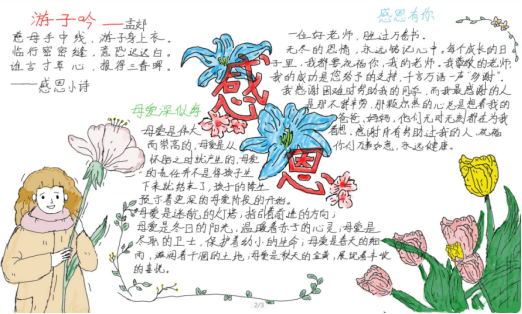 游子吟 ——孟郊
慈母手中线，游子身上衣。
临行密密缝，意恐迟迟归。
谁言寸草心，报得三春晖。
——感恩小诗
感恩
感恩有你
一位好老师，胜过万卷书。
无尽的恩情，永远铭记心中。每个成长的日子
里，我都要祝福你，我的老师。我敬爱的老师：
我的成功是您给予的支持，千言万语一声“多谢”。
我感谢困难时帮助我的同学，而我最感谢的人
是那不辞辛劳，
爸爸，妈妈，他们无时无刻都在为我
着想，感谢所有帮助过我的人，祝福
你们万事如意，永远健康。
母爱深似海
母爱是伟大
而崇高的，母爱是从
怀胎之时就产生的，母爱
的责任不是保孩子生
下来就结束了，孩子的降生
预示着更深的母爱阶段的开始。
母爱是迷航的灯塔，指引着前进的方向；
母爱是冬日的阳光，温暖着赤子的心灵；母爱是
尽职的卫士，保护着幼小的生命；母爱是春天的细
雨，滋润着干涸的土地；母爱是秋天的金黄，展现着丰收
的喜悦。
2/3